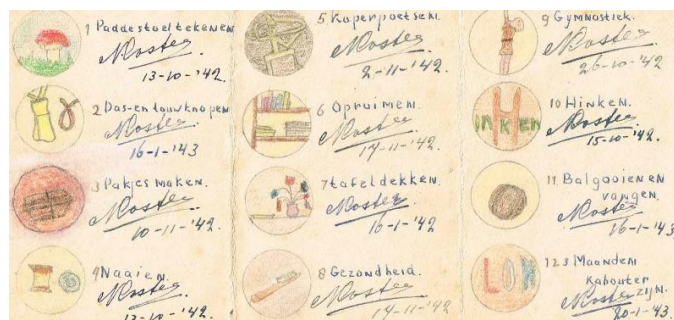 1 Paddestoel tekenen.
NKoster
13-10-'42.
2 Das-en touwknopen
NKoster
16-1-'43
3 Pakjes maken.
NKoster
10-11-'42.
4 Naaien.
NKoster
13-10-'42.
5 Koperpoetsen.
NKoster
2-11-'42.
6 Opruimen.
NKoster
14-11-'42.
7 tafeldekken.
NKoster
16-1-'42.
8 Gezondheid.
NKoster
14-11-'42.
9 Gymnastiek.
NKoster
26-10-'42.
10 Hinken.
HINKEN
NKoster
15-10-'42.
11 Balgooien en
vangen.
NKoster
16-1-'43
12 3 Maanden
Kabouter
zijn.
NKoster
20-1-'43.